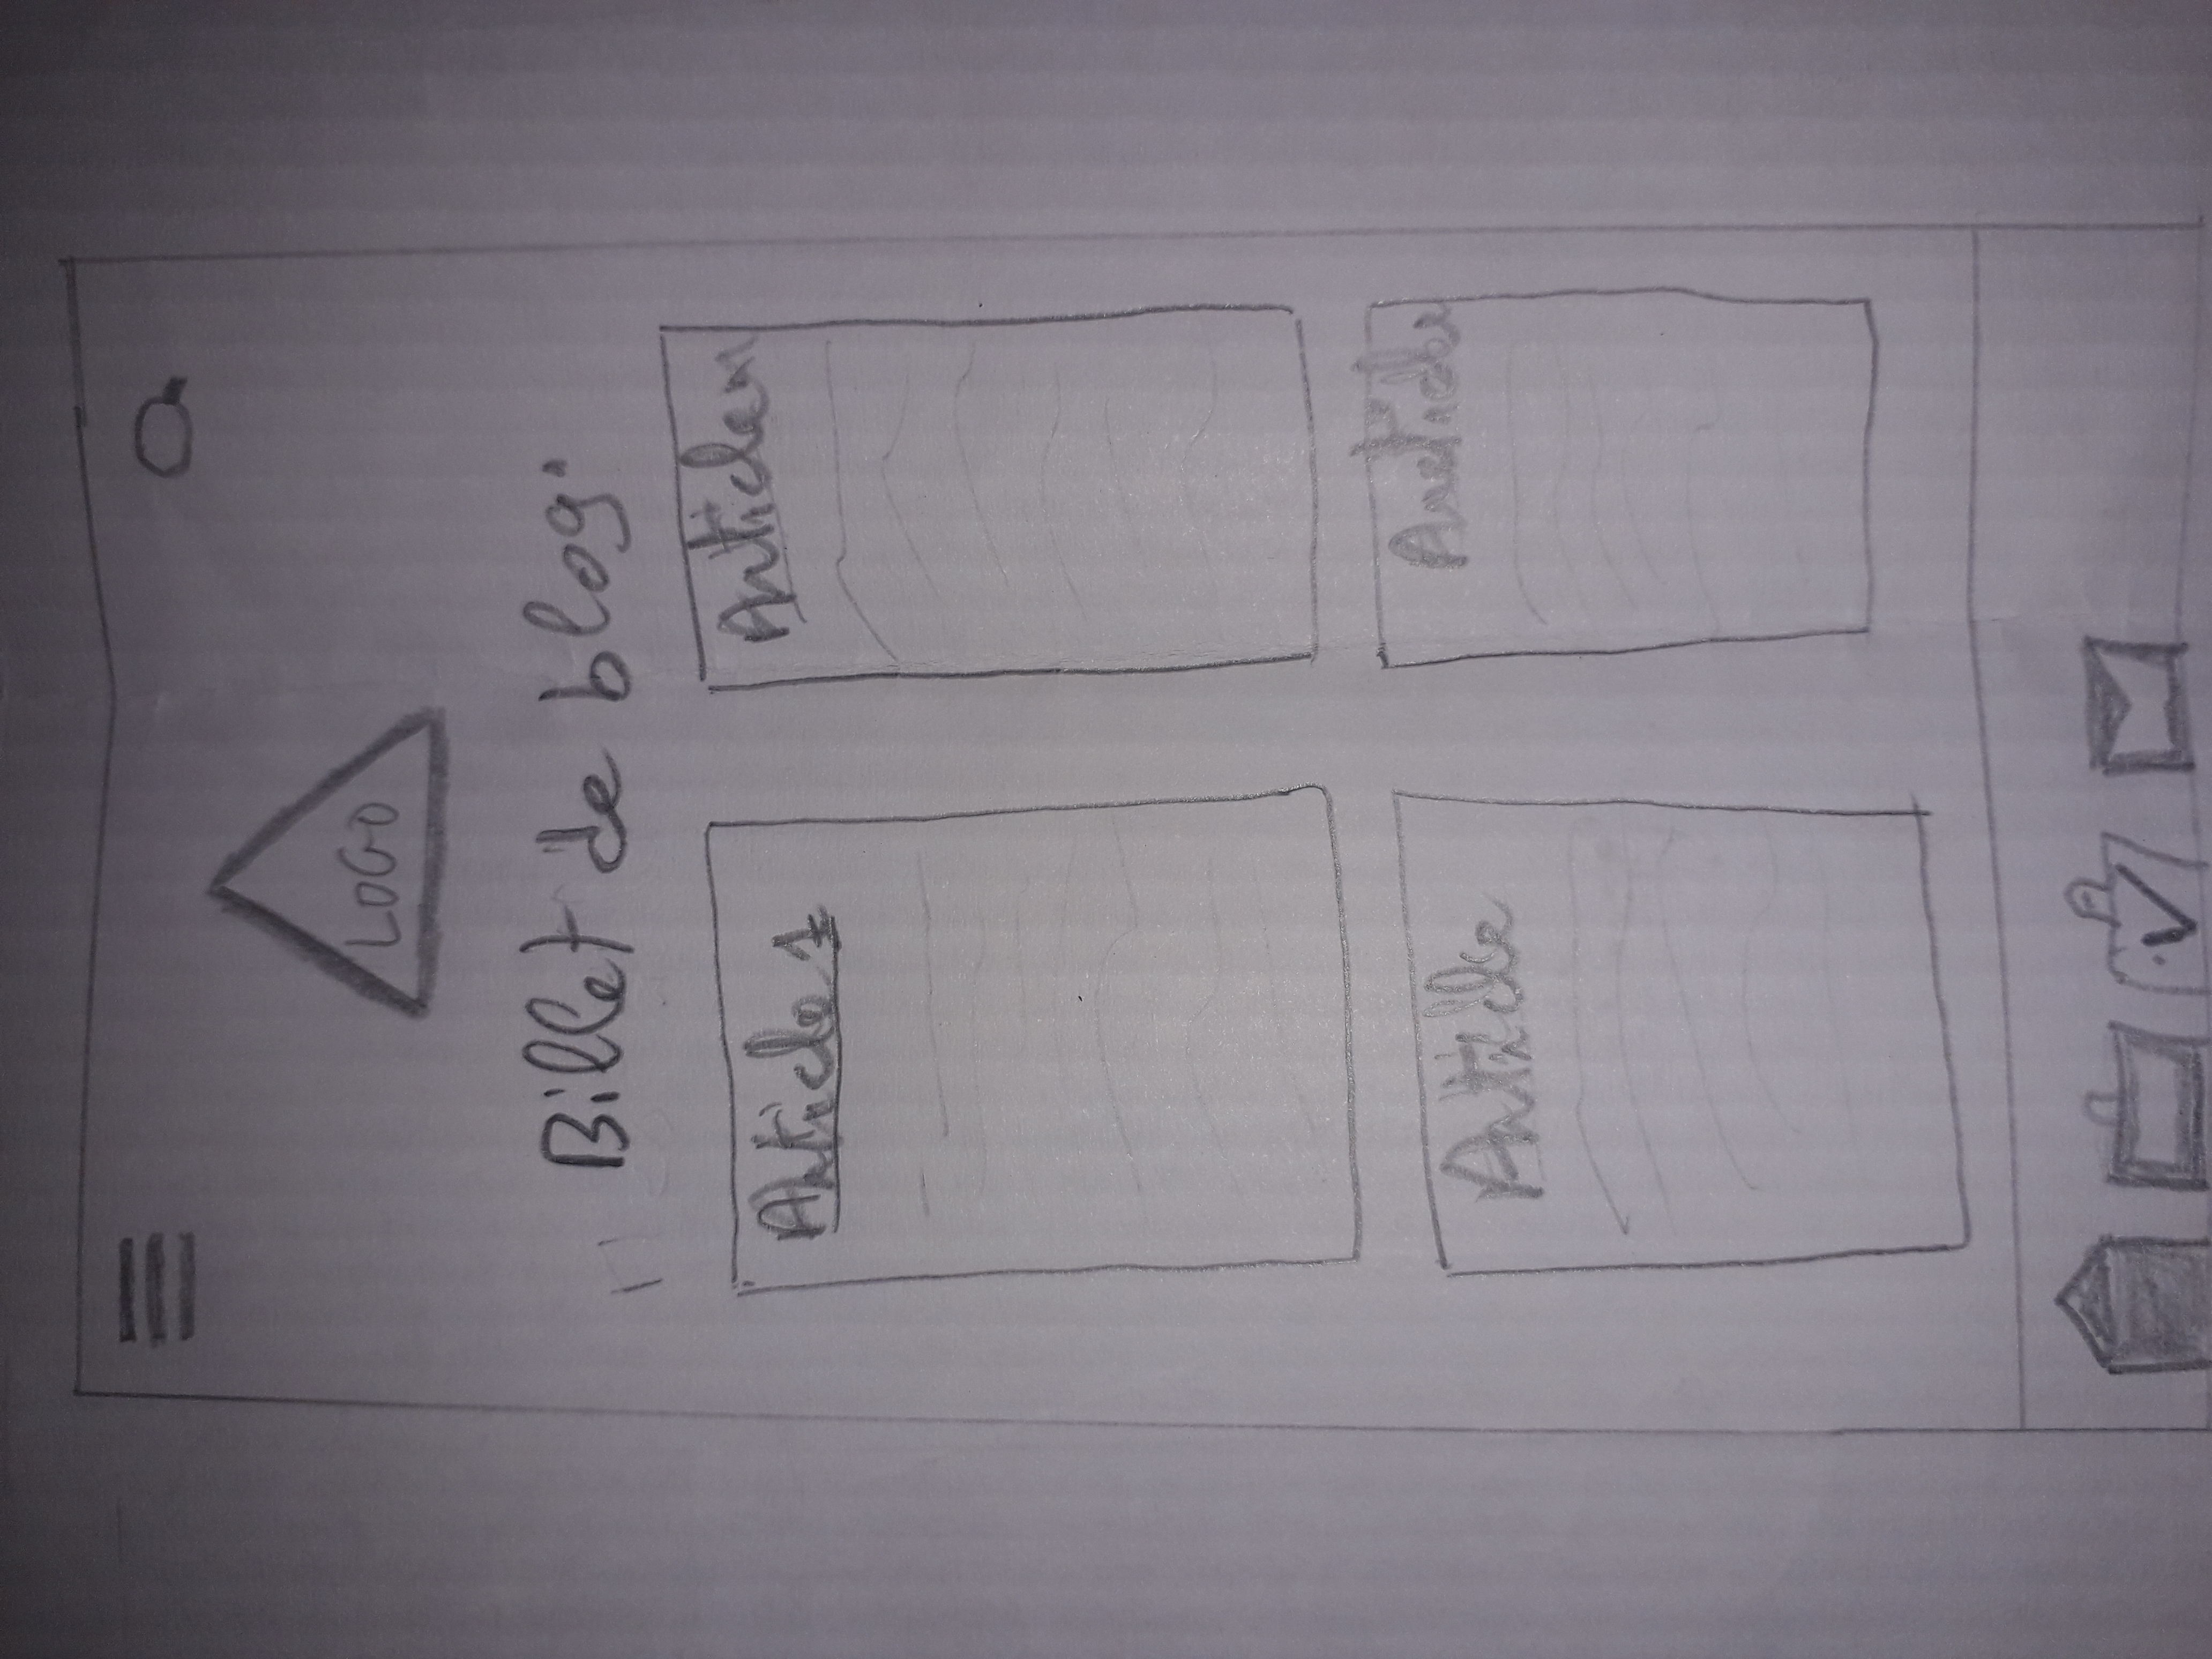 LOGO
Billet de blog
Article 1
Article n
Article
Article